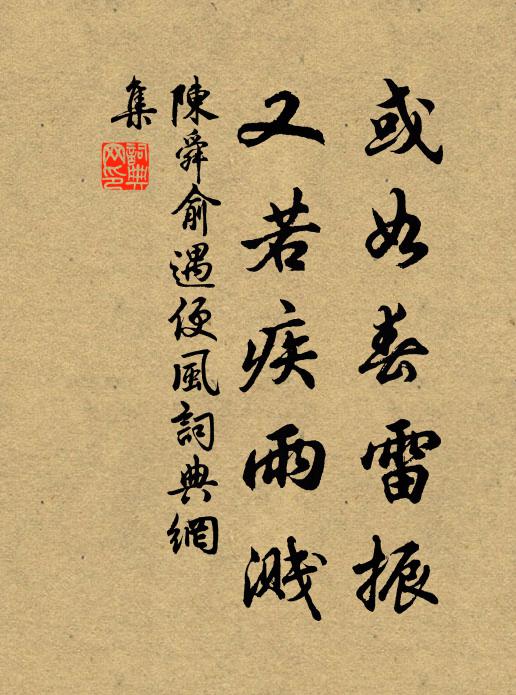 或如春雷振
又若疾雨濺
陳舜俞遇便風詞典網
集
詞典網印